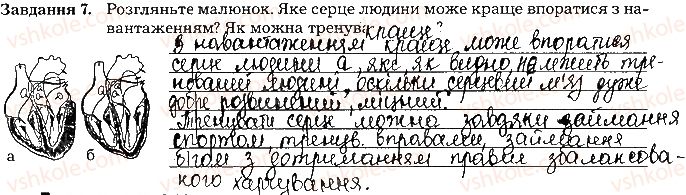 Завдання 7. Розгляньте малюнок. Яке серце людини може краще впоратися з на-
вантаженням? Як можна тренува краще?
З навантаженням краще може впоратися
серце людини а, яке як видно, належить тре-
нованій людині, оскільки серцевий м'яз дуже
добре розвинений, міцний.
Тренувати серце можна завдяки займання
спортом, тренув. вправами, займання
бігом з дотриманням правил збалансова-
ного харчування.
а
б